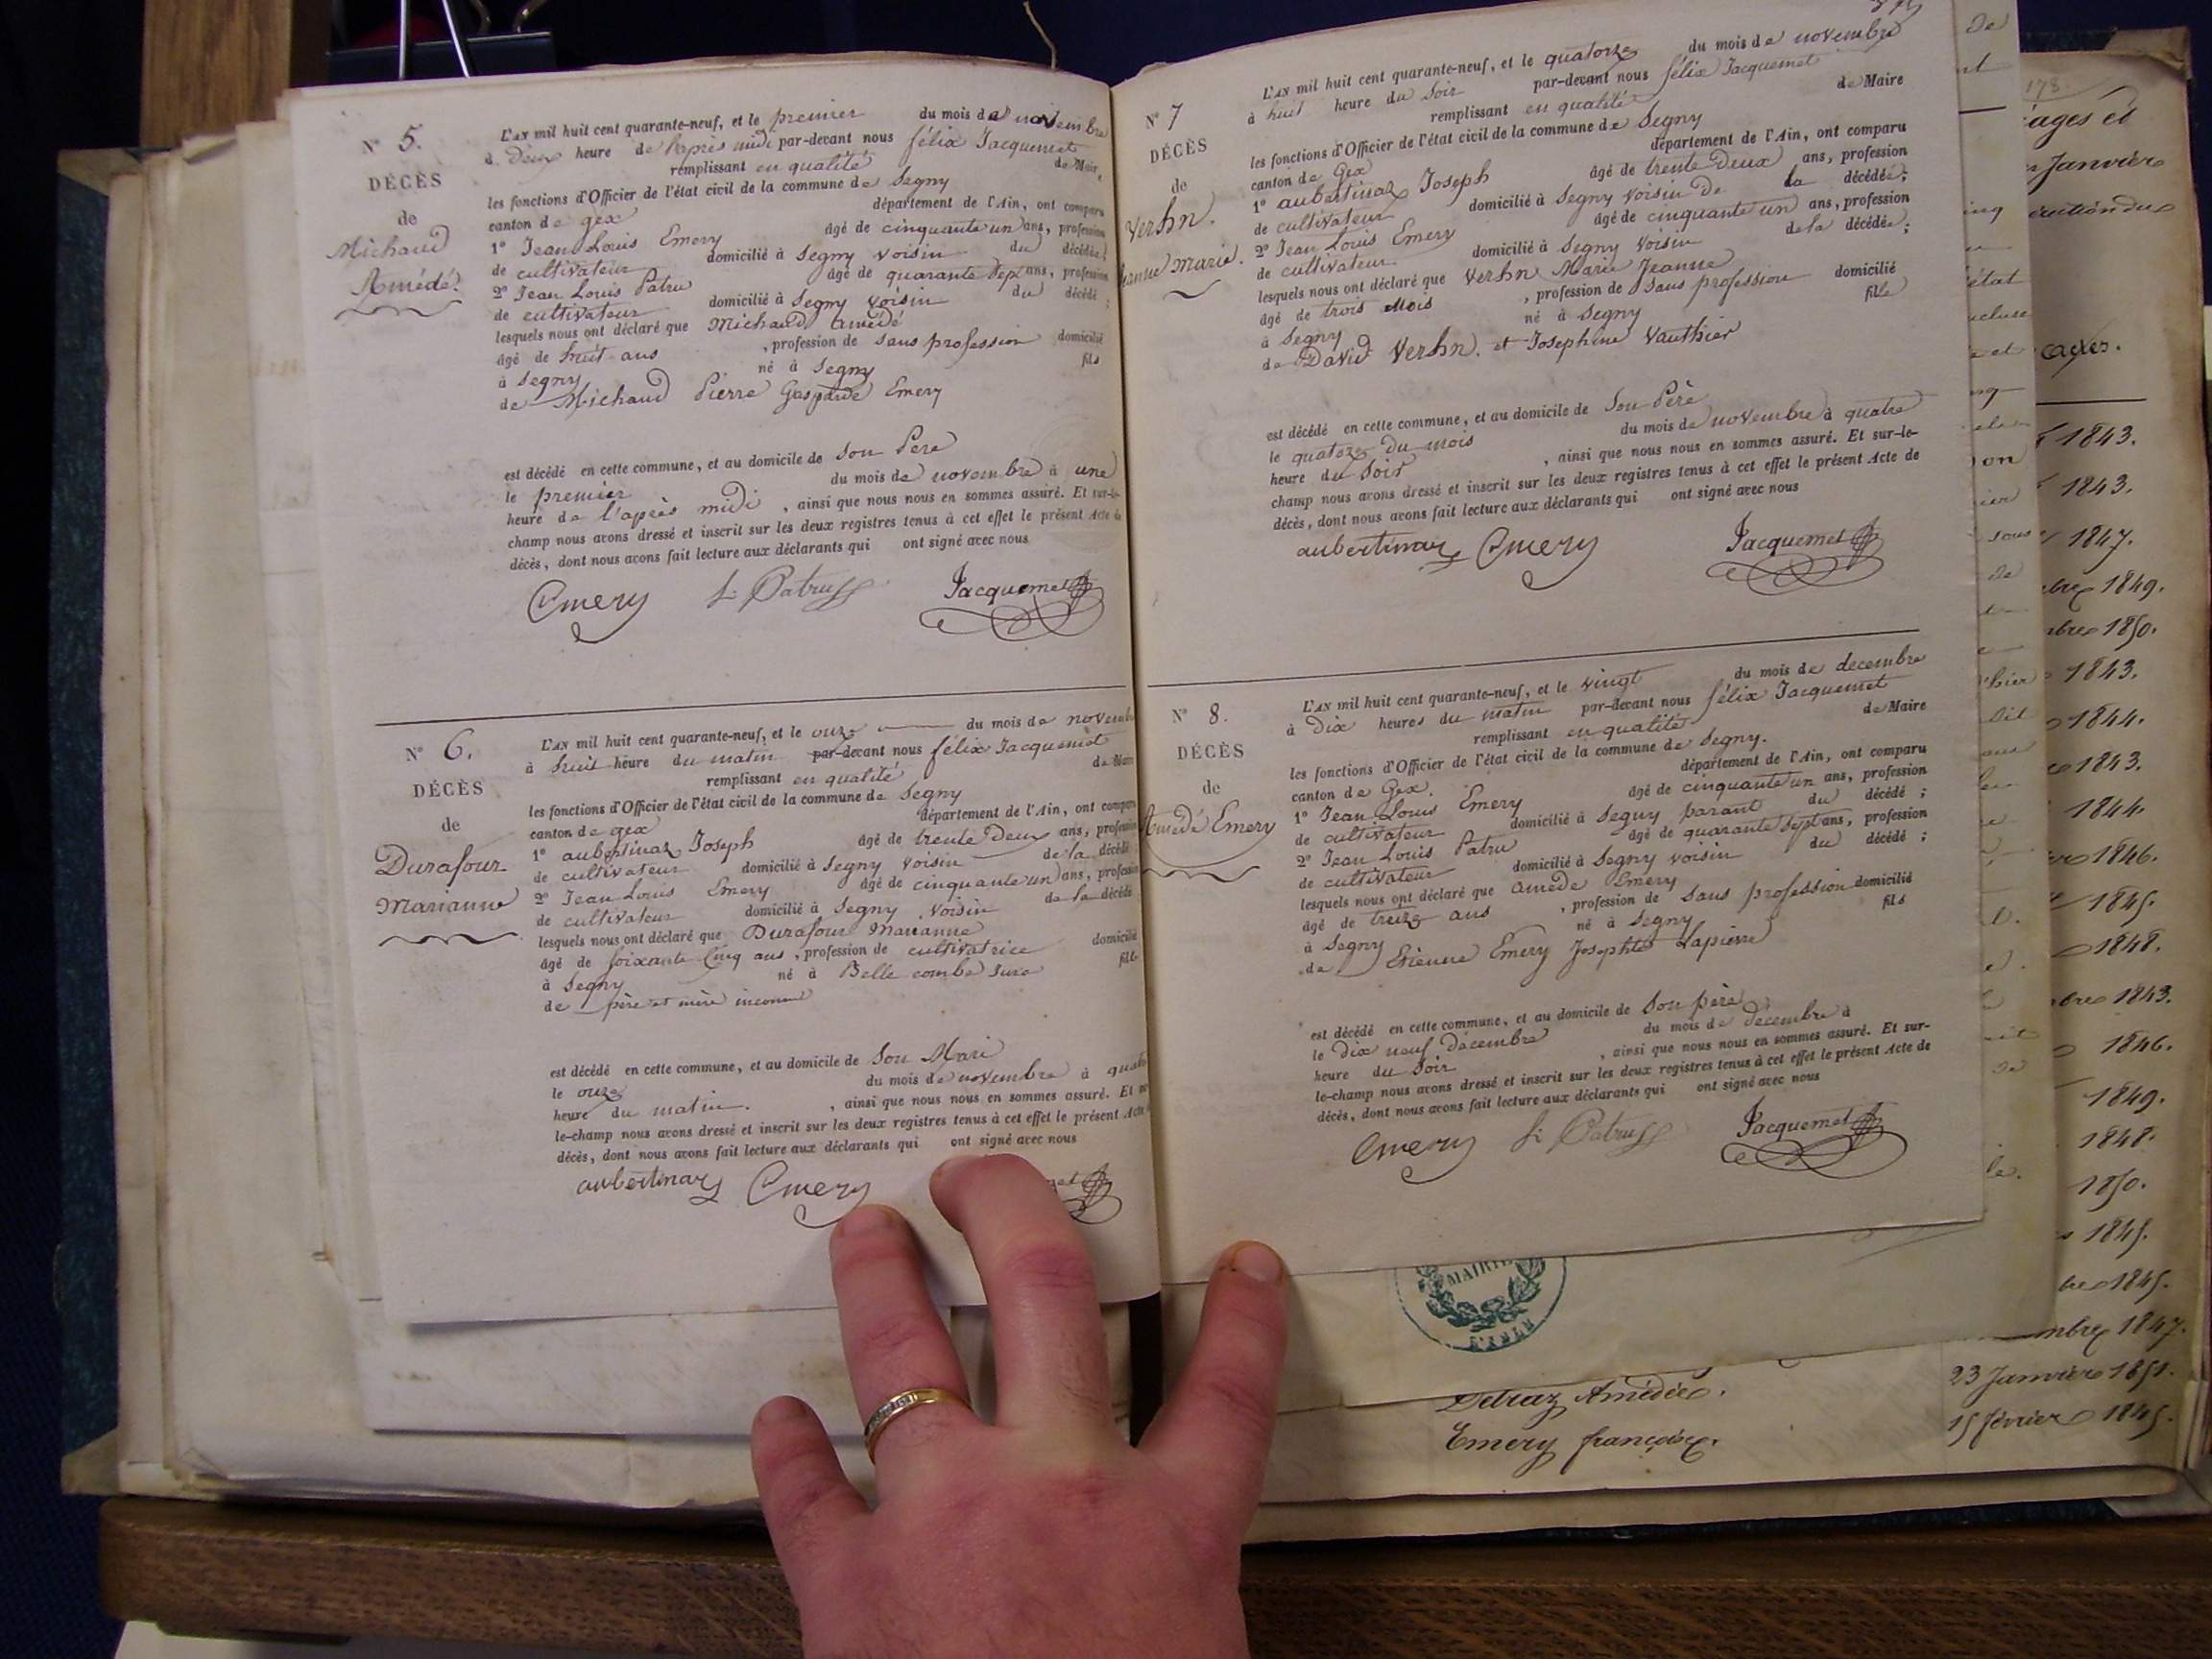 N° 5.
DÉCÈS
de
Michaud
Amédé
L'AN mil huit cent quarante-neuf, et le premier du mois de novembre
à Deux heure de l'après midi par-devant nous félix Jacquemet
remplissant en qualité de Maire,
les fonctions d'Officier de l'état civil de la commune de Segny
canton de gex département de l'Ain, ont comparu
1° Jean Louis Emery âgé de cinquante un ans, profession
de cultivateur domicilié à Segny voisin du décédé;
2° Jean Louis Patru âgé de quarante Sept ans, profession
de cultivateur domicilié à Segny voisin du décédé;
lesquels nous ont déclaré que Michaud amédé
âgé de huit ans, profession de Sans profession domicilié
à Segny né à Segny fils
de Michaud Pierre Gasparde Emery
est décédé en cette commune, et au domicile de Son Père
le premier du mois de novembre à une
heure de l'après midi, ainsi que nous nous en sommes assuré. Et sur-le-
champ nous avons dressé et inscrit sur les deux registres tenus à cet effet le présent Acte de
décès, dont nous avons fait lecture aux déclarants qui ont signé avec nous
Emery Patru Jacquemet
N° 6.
DÉCÈS
de
Durafour
Marianne
L'AN mil huit cent quarante-neuf, et le onze du mois de novembre
à huit heure du matin par-devant nous félix Jacquemet
remplissant en qualité de Maire
les fonctions d'Officier de l'état civil de la commune de Segny
canton de gex département de l'Ain, ont comparu
1° aubertinaz Joseph âgé de trente Deux ans, profession
de cultivateur domicilié à Segny voisin de la décédé
2° Jean Louis Emery âgé de cinquante un ans, profession
de cultivateur domicilié à Segny voisin de la décédé
lesquels nous ont déclaré que Durafour Marianne
âgé de Soixante Cinq ans, profession de cultivatrice domicilié
à Segny né à Belle combe Jura fille
de père et mère inconnu
est décédé en cette commune, et au domicile de Son Mari
le onze du mois de novembre à quatre
heure du matin., ainsi que nous nous en sommes assuré. Et sur
le-champ nous avons dressé et inscrit sur les deux registres tenus à cet effet le présent Acte
décès, dont nous avons fait lecture aux déclarants qui ont signé avec nous
aubertinaz Emery
N° 7
DÉCÈS
de
Verhn.
Jeanne Marie.
L'AN mil huit cent quarante-neuf, et le quatorze du mois de novembre
à huit heure du Soir par-devant nous félix Jacquemet
remplissant en qualité de Maire
les fonctions d'Officier de l'état civil de la commune de Segny
canton de Gex département de l'Ain, ont comparu
1° aubertinaz Joseph âgé de trente Deux ans, profession
de cultivateur domicilié à Segny voisin De la décédée;
2° Jean Louis Emery âgé de cinquante un ans, profession
de cultivateur domicilié à Segny voisin de la décédée;
lesquels nous ont déclaré que Verhn Marie Jeanne
âgé de trois Mois, profession de Sans profession domicilié
à Segny né à Segny fille
de David Verhn. et Josephine Vauthier
est décédé en cette commune, et au domicile de Son Père
le quatorze du mois du mois de novembre à quatre
heure du Soir, ainsi que nous nous en sommes assuré. Et sur-le-
champ nous avons dressé et inscrit sur les deux registres tenus à cet effet le présent Acte de
décès, dont nous avons fait lecture aux déclarants qui ont signé avec nous
aubertinaz Emery Jacquemet
N° 8.
DÉCÈS
de
Amédé Emery
L'AN mil huit cent quarante-neuf, et le vingt du mois de decembre
à Dix heures du matin par-devant nous félix Jacquemet
remplissant en qualité de Maire
les fonctions d'Officier de l'état civil de la commune de Segny.
canton de Gex. département de l'Ain, ont comparu
1° Jean Louis Emery âgé de cinquante un ans, profession
de cultivateur domicilié à Segny parant du décédé;
2° Jean Louis Patru âgé de quarante Sept ans, profession
de cultivateur domicilié à Segny voisin du décédé;
lesquels nous ont déclaré que amédé Emery
âgé de treize ans, profession de Sans profession domicilié
à Segny né à Segny fils
de Etienne Emery Josephte Lapierre
est décédé en cette commune, et au domicile de Son père
le Dix neuf Décembre du mois de Décembre à
heure du Soir, ainsi que nous nous en sommes assuré. Et sur-
le-champ nous avons dressé et inscrit sur les deux registres tenus à cet effet le présent Acte de
décès, dont nous avons fait lecture aux déclarants qui ont signé avec nous
Emery Patru Jacquemet
MAIRIE
178.
Janvier
1843.
1843.
1847.
1849.
1850.
1843.
1844.
1843.
1844.
1846.
1845.
1848.
1843.
1846.
1849.
1848.
1850.
1845.
1845.
1847.
Detraz Amédée. 23 Janvier 1851.
Emery françoise. 15 février 1845.